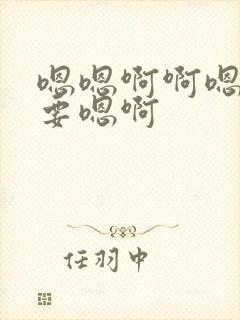 嗯嗯啊啊嗯
要嗯啊
任羽中